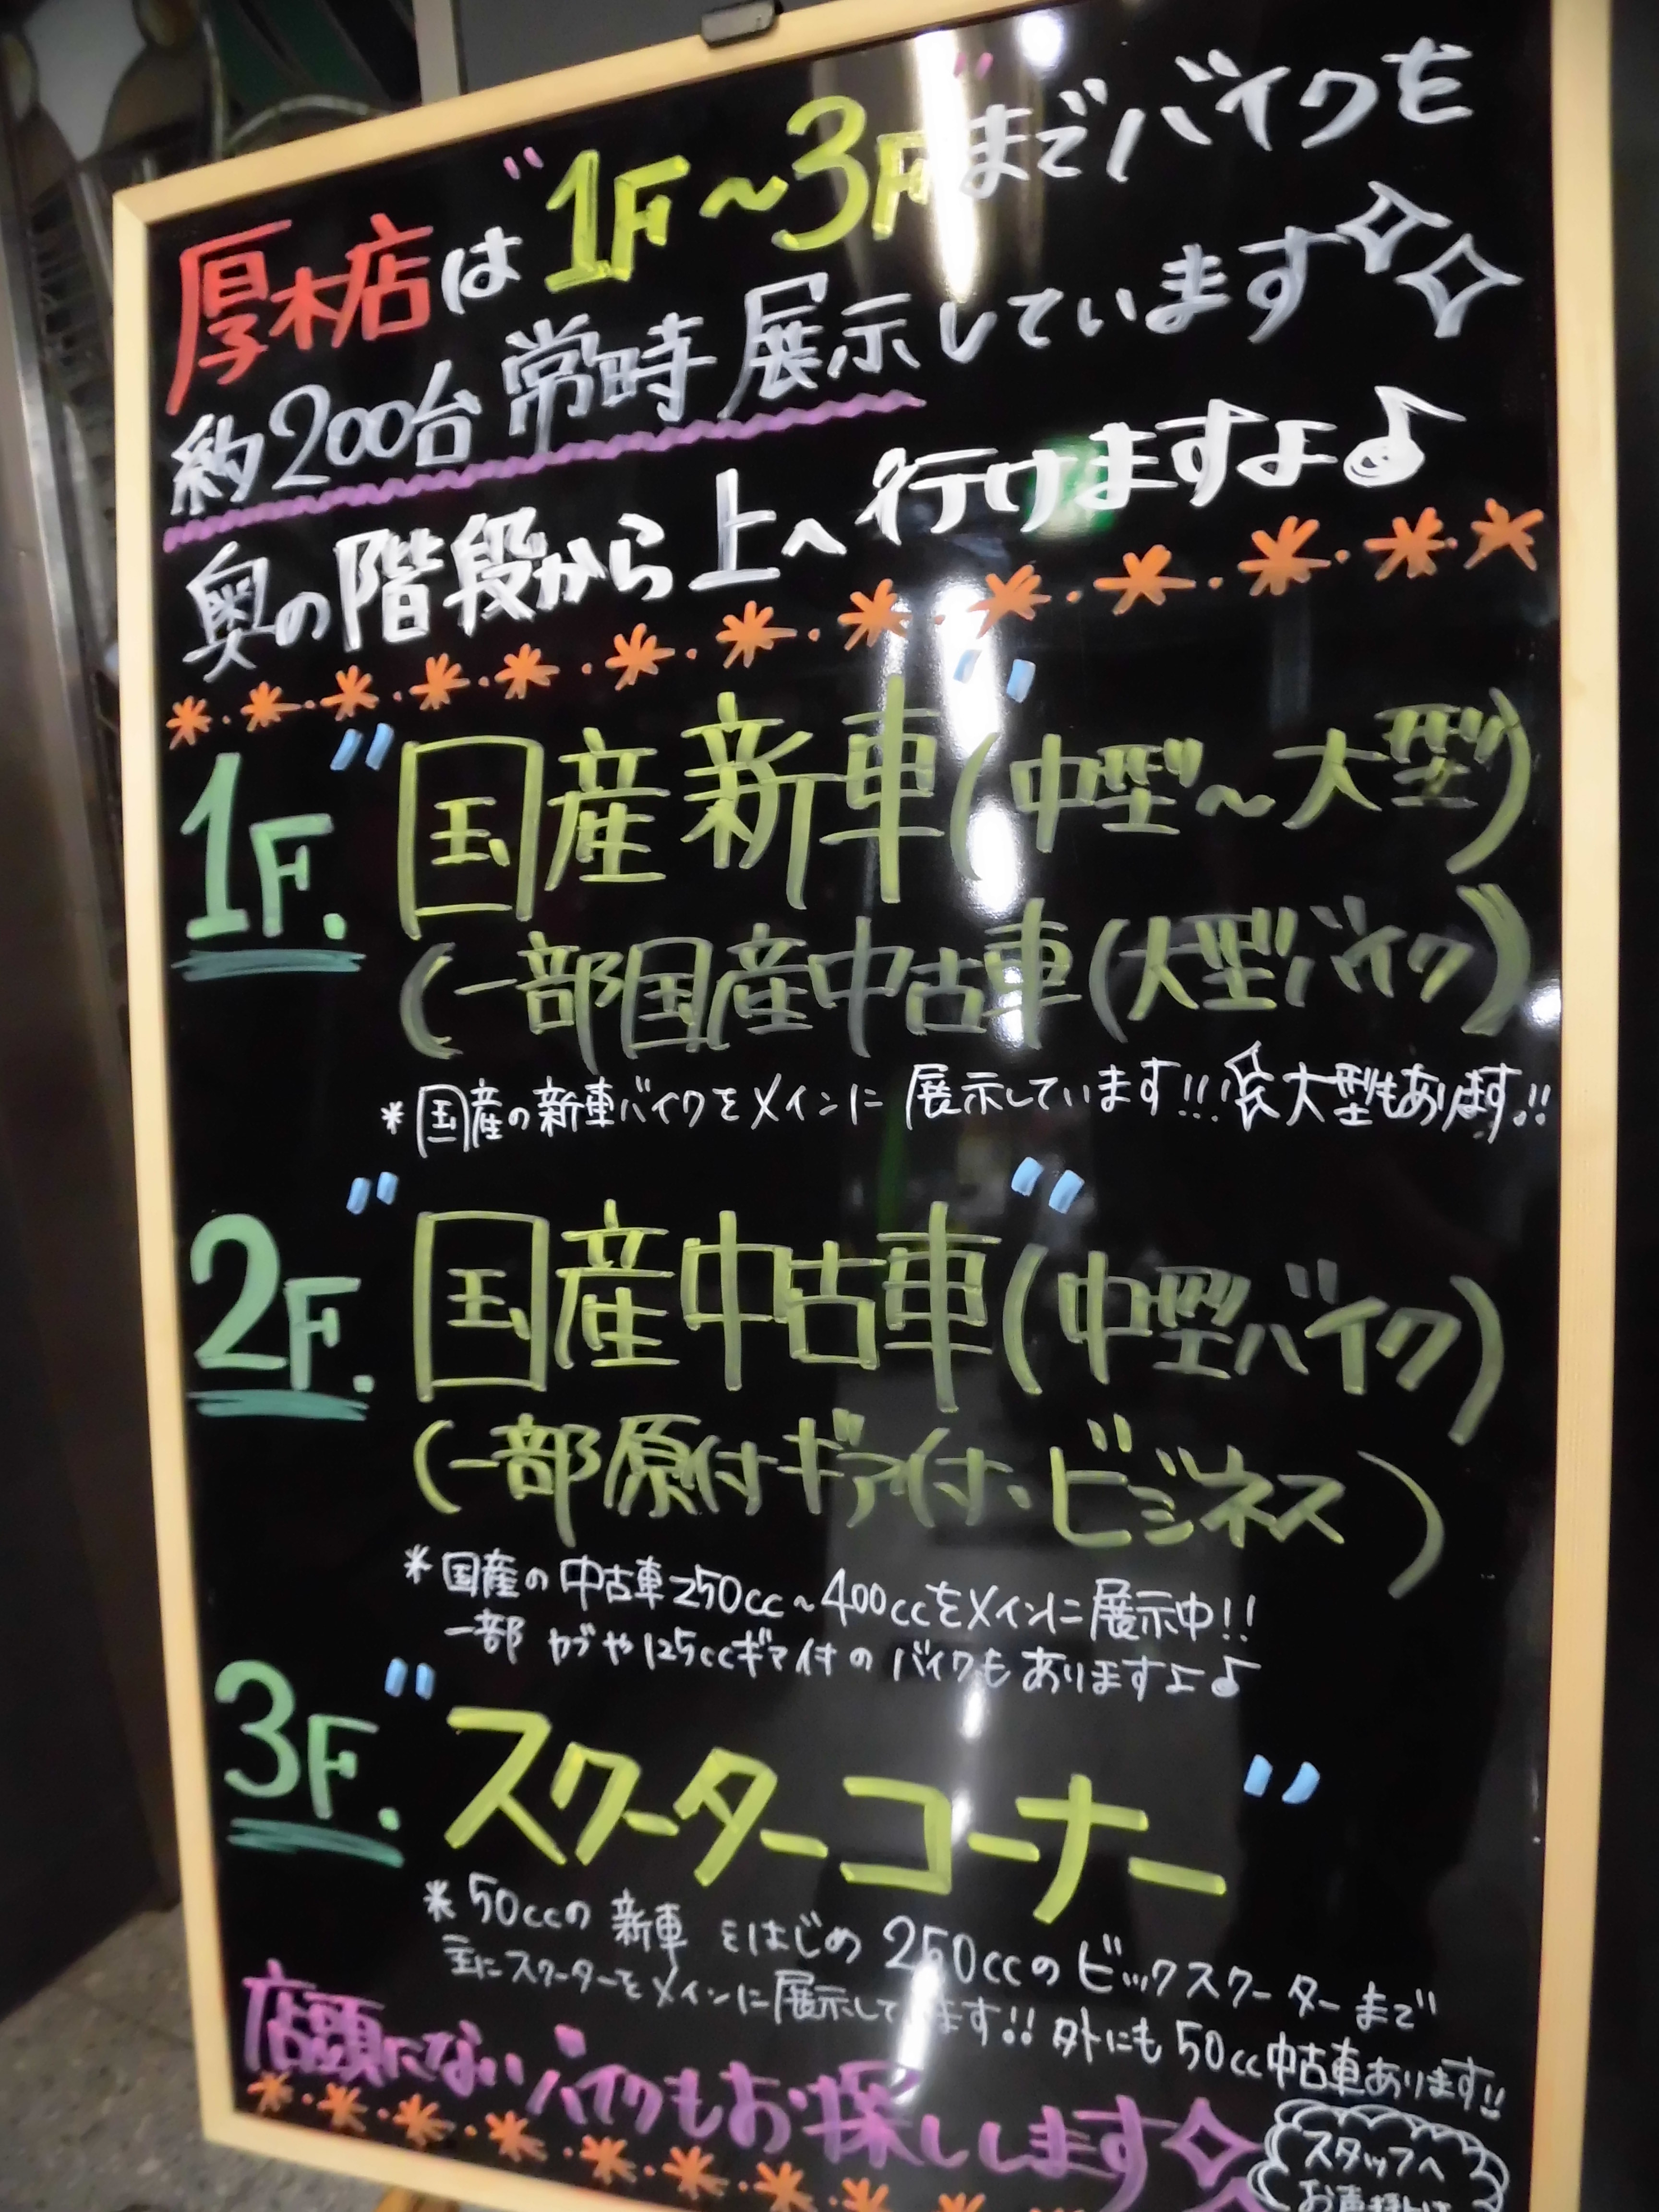 厚木店は"1F～3F"までバイクを
約200台常時展示しています
奥の階段から上へ行けますよ♪
1F. "国産新車"(中型～大型)
(一部国産中古車(大型バイク))
*国産の新車バイクをメインに展示しています!!! 大型もあります!!
2F. "国産中古車"(中型バイク)
(一部原付ギア付・ビジネス)
*国産の中古車250cc～400ccをメインに展示中!!
一部カブや125ccギア付のバイクもありますよ♪
3F. "スクーターコーナー"
*50ccの新車をはじめ250ccのビックスクーターまで
主にスクーターをメインに展示してます!! 外にも50cc中古車あります!!
店頭にないバイクもお探しします
スタッフへ
お声掛け